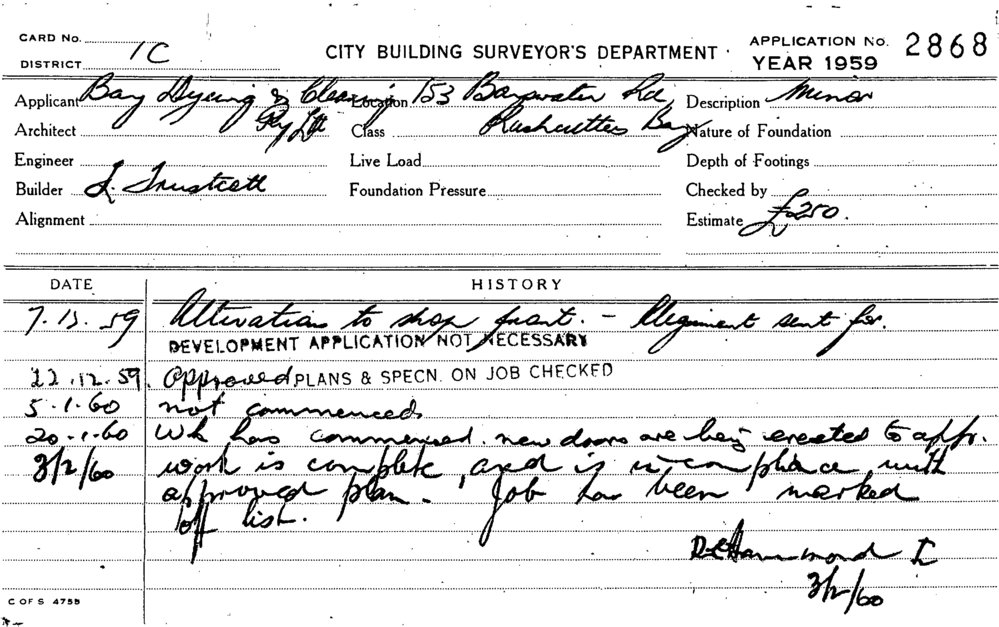 CARD No.
DISTRICT 1C
CITY BUILDING SURVEYOR'S DEPARTMENT
APPLICATION No. 2868
YEAR 1959
Applicant Bay Dyeing & Cleaning Pty Ltd
Location 153 Bayswater Rd, Rushcutters Bay
Description Minor
Architect
Class
Nature of Foundation
Engineer
Live Load
Depth of Footings
Builder J.
Foundation Pressure
Checked by
Alignment
Estimate £250.
DATE
HISTORY
7.12.59 Alteration to shop front. - Alignment sent for.
DEVELOPMENT APPLICATION NOT NECESSARY
22.12.59. Approved PLANS & SPECN. ON JOB CHECKED
5.1.60 not commenced
20.1.60 Wk has commenced. new doors are being erected to appr.
3/2/60 work is complete, and is in compliance with
approved plan. Job has been marked
off list.
Hammond
3/2/60
C OF S 4755